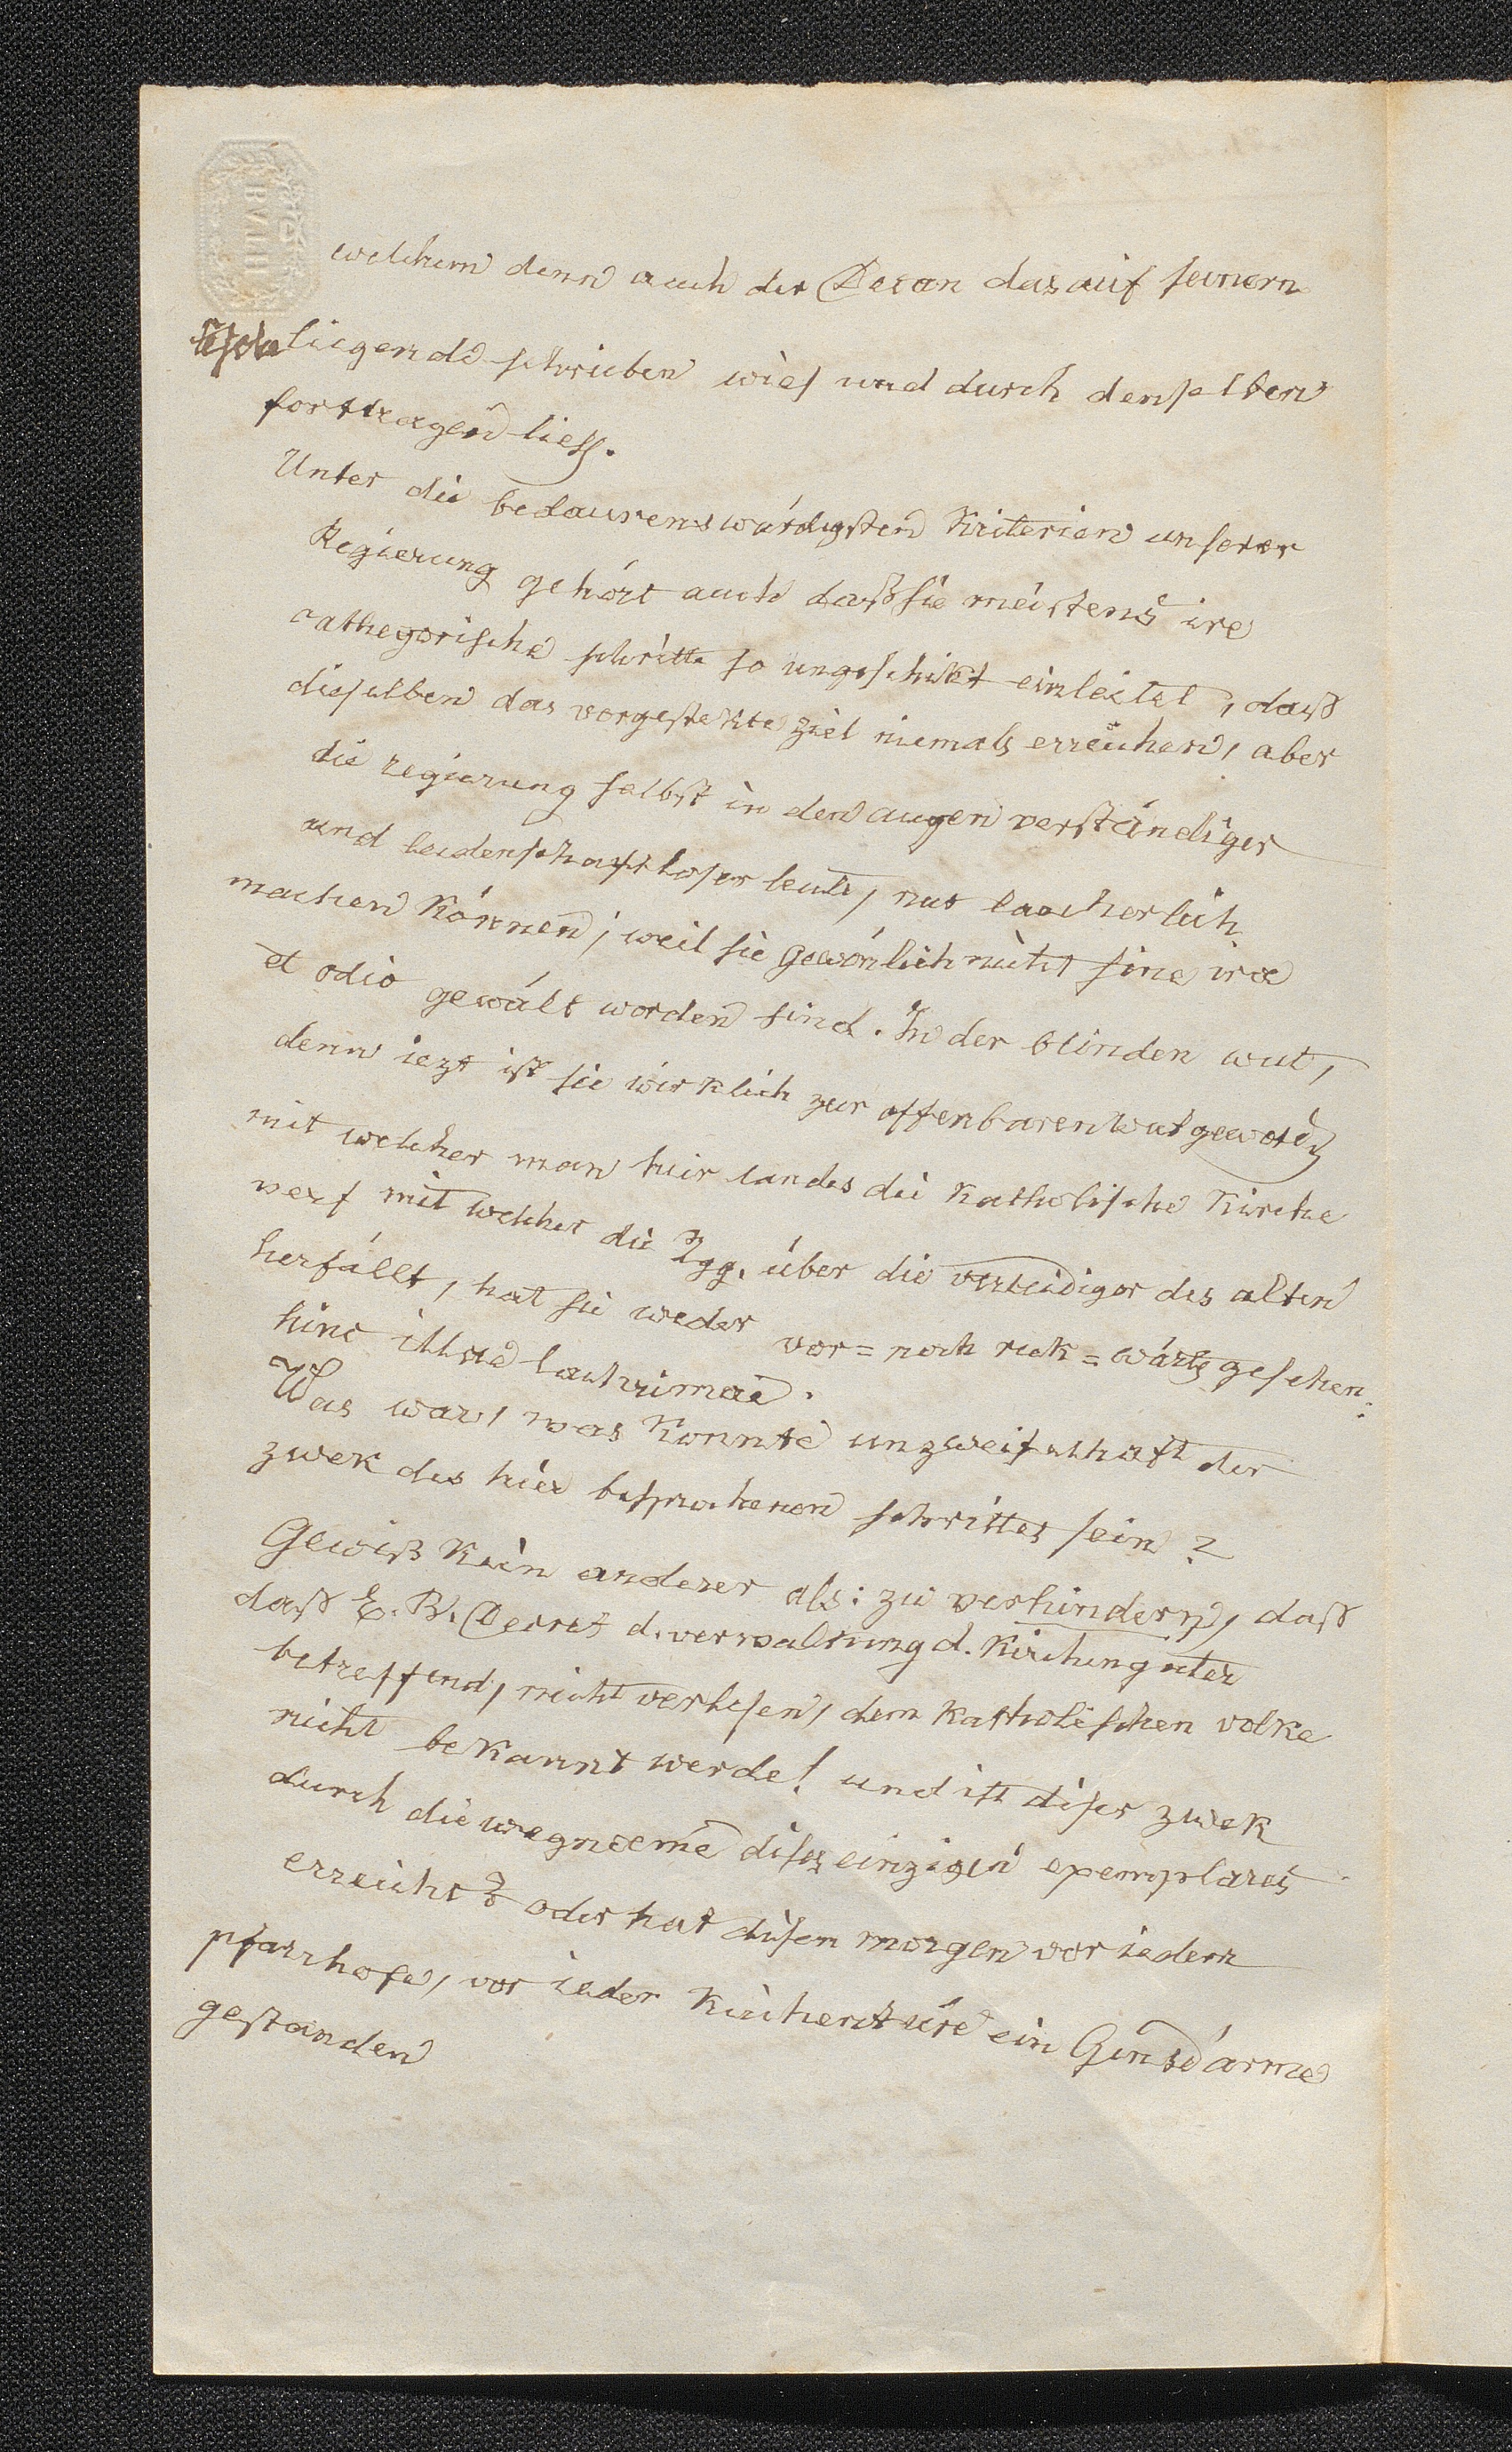 welchem denn auch der Decan das auf seinem
tische liegende schreiben wies und durch denselben
forttragen liess.
Unter die bedaurenswürdigsten Kriterien unserer
Regierung gehört auch daß sie meistens ire
cathegorische schritte so ungeschikt einleitet, daß
dieselben das vorgestekte ziel niemals erreichen, aber
die regierung selbst in den augen verständiger
und leidenschaftloser leute, nur laecherlich
machen können; weil sie gewönlich nicht sine ira
et odio gewält worden sind. In der blinden wut,
denn iezt ist sie wirklich zur offenbaren wut geworden
mit welcher man hier landes die Katholische Kirche
mit welcher die Zgg. über die verteidiger des alten
herfällt, hat sie weder vor= noch ruk=wärts gesehen:
hinc illae lachrimae.
Was war, was konnte unzweifelhaft der
zwek des hier besprochenen schrittes sein?
Gewiß kein anderer als: zu verhindern, daß
daß E. B. Decret d. verwaltung d. Kirchengüter
betreffend, nicht verlesen, dem Katholischen volke
nicht bekannt werde! und ist diser zwek
durch die wegnaeme dises einzigen exemplares
erreicht? oder hat disem morgen vor iedem
pfarrhofe, vor ieder Kirchentüre ein Gensdarme
gestanden